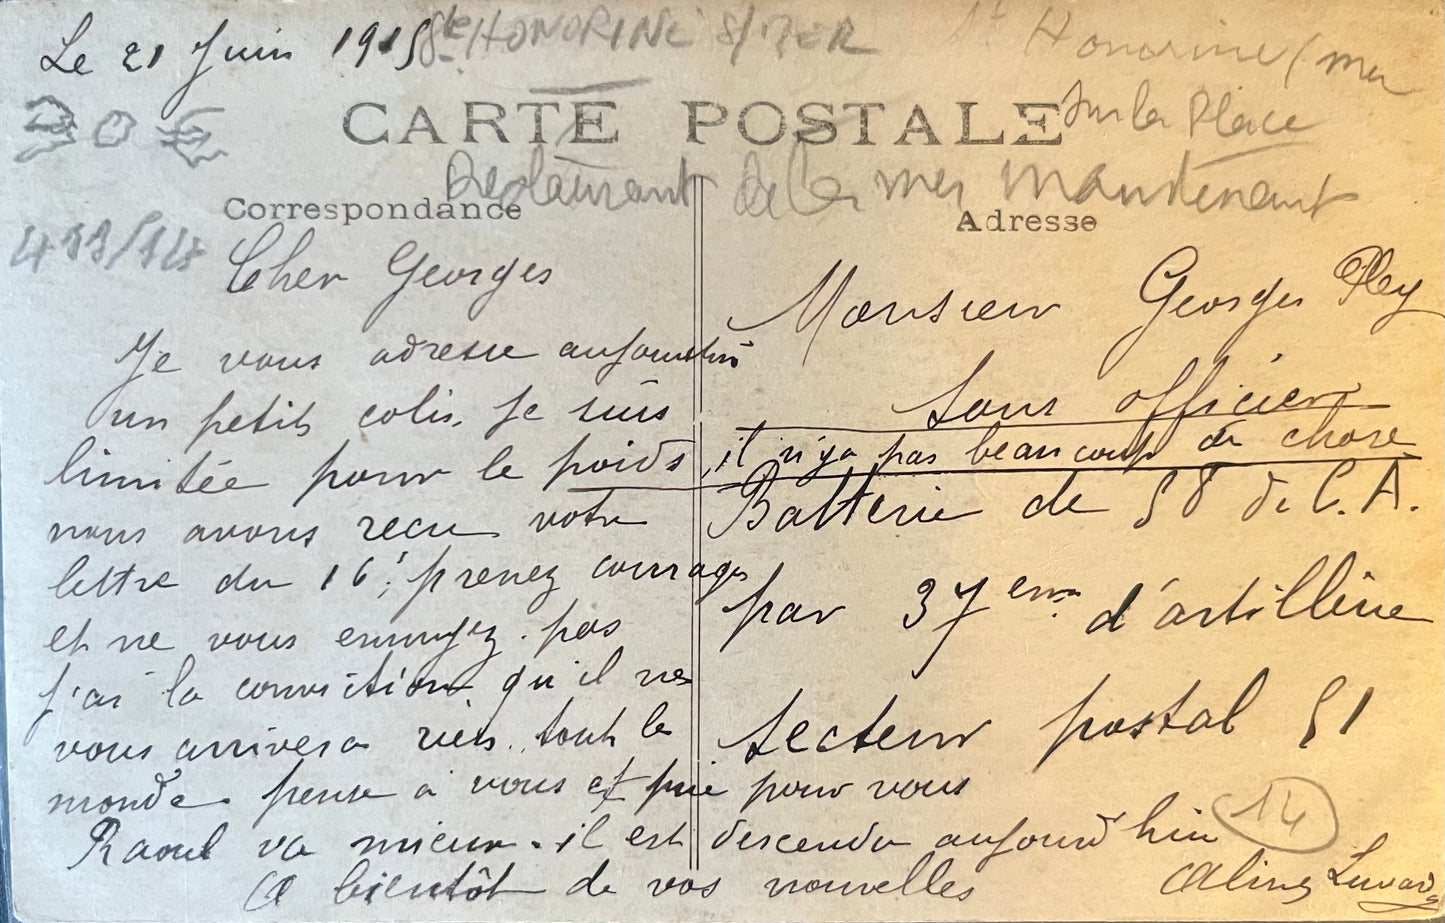 Le 21 Juin 1915
Ste HONORINE S/MER
St Honorine / mer
sur la Place
30 €
CARTE POSTALE
Restaurant de la mer maintenant
Correspondance
Adresse
Cher Georges
Je vous adresse aujourdhui
un petit colis, je suis
limitée pour le poids, il n'y a pas beaucoup de chose
nous avons recu votre
lettre du 16, prenez courages
et ne vous ennuyez pas
j'ai la conviction qu'il ne
vous arrivera rien. tout le
monde pense à vous et prie pour vous
Raoul va mieux. il est descendu aujourd'hui
A bientôt de vos nouvelles
Aline
Monsieur Georges
sous officier
Batterie de 58 de C. A.
par 37eme d'artillerie
secteur postal 51
14